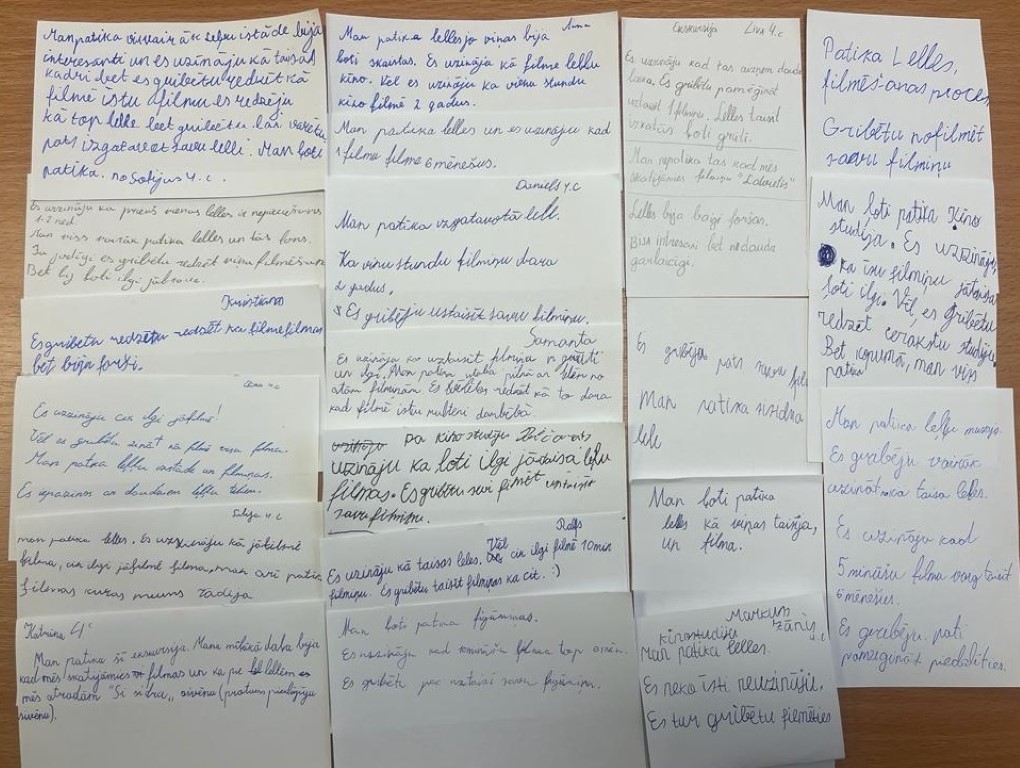 Man patika visvairāk leļļu istāde bija
interesanti un es uzināju kā taisa
kadri bet es gribētu redzēt kā
filmē īstu filmu es redzēju
kā top lelle bet gribētu lai varētu
pats izgatavot savu lelli. Man ļoti
patika. no Sofijas 4.c.
Es uzzināju ka priekš vienas lelles ir nepieciešams
1-2 ned.
Man viss vairāk patika lelles un tās fons.
Bet bij ļoti ilgi jābrauc.
Kristians
Es gribētu redzētu redzēt kā filmē filmas
bet bija forši.
4.c
Es uzzināju cik ilgi jāfilmē!
Vēl es gribētu zināt kā filmē
Man patika leļļu izstāde un filmiņas.
Es iepazinos ar daudziem leļļu tēliem.
4.c
man patika lelles. Es uzzināju kā
filma, cik ilgi jāfilmē filma, man arī patika
filmas kuras mums rādija
Katrīna 4c
Man patika šī ekskursija. Mana mīļākā daļa bija
kad mēs skatījāmies filmas un ka pie lellēm
mēs atradām
suvēnu).
Anna
Man patika lelles jo viņas bija
ļoti skaistas. Es uzināja kā filmē leļļu
kino. Vēl es uzināju ka vienu stundu
kino filmē 2 gadus.
Man patika lelles un es uzināju kad
1 filmu filmē 6 mēnešus.
Daniels 4.c
Man patika izgatavotā lell.
Ka vinu stundu filmiņu dara
2 gadus.
Es gribēju ustaisīt savu filmiņu.
Samanta
Es uzināja ka uztaisīt filmiņa ir grūti
un ilgi. Man patika
filmiņām. Es redzēt kā to dara
kad filmē īstu multeni darbībā.
pa kino studiju
uzināju ka ļoti ilgi jātaisa leļļu
filmas. Es gribētu sevi filmēt uztaisīt
savu filmiņu.
Ralfs
Es uzināju kā taisas leles. Vēl cik ilgi filmē 10min
filmiņu. Es gribētu taisīt filmiņas kā cit. :)
Man ļoti patika figūriņas.
Es uzzināju kad filma top
Es gribētu pac uztaisīt savu figūriņu.
Ekskursija Līva 4.c
Es uzzināju kad tas aizņem daudz
laika. Es gribētu pamēģināt
uztaisīt 1 filmiņu. Lelles taisīt
izskatās ļoti grūti.
Man nepatika tas kad mēs
skatījāmies filmiņu
Lelles bija baigi foršas.
Bija intresani bet nedaudz
garlaicīgi.
Es gribēja pats
Man patika
leli
Man ļoti patika
leles kā viņas taisija,
un filma.
Markuss
Zānis
kinostudija 4.c
Man patika lelles.
Es neko īsti neuzināju.
Es tur gribētu filmēties
Patika Lelles,
filmēšanas proces
Gribētu nofilmēt
savu filmiņu
Man ļoti patika Kino
studija. Es uzzināju,
ka īsu filmiņu jātaisa
ļoti ilgi. Vēl, es gribētu
redzēt studiju.
Bet kopumā, man viss
patika
Man patika leļļu muzejs.
Es gribēju vairāk
uzināt kā taisa leles.
Es uzzināju kad
5 minūšu filmu var taisīt
6 mēnešus.
Es gribēju pati
pamēģināt piedalīties.